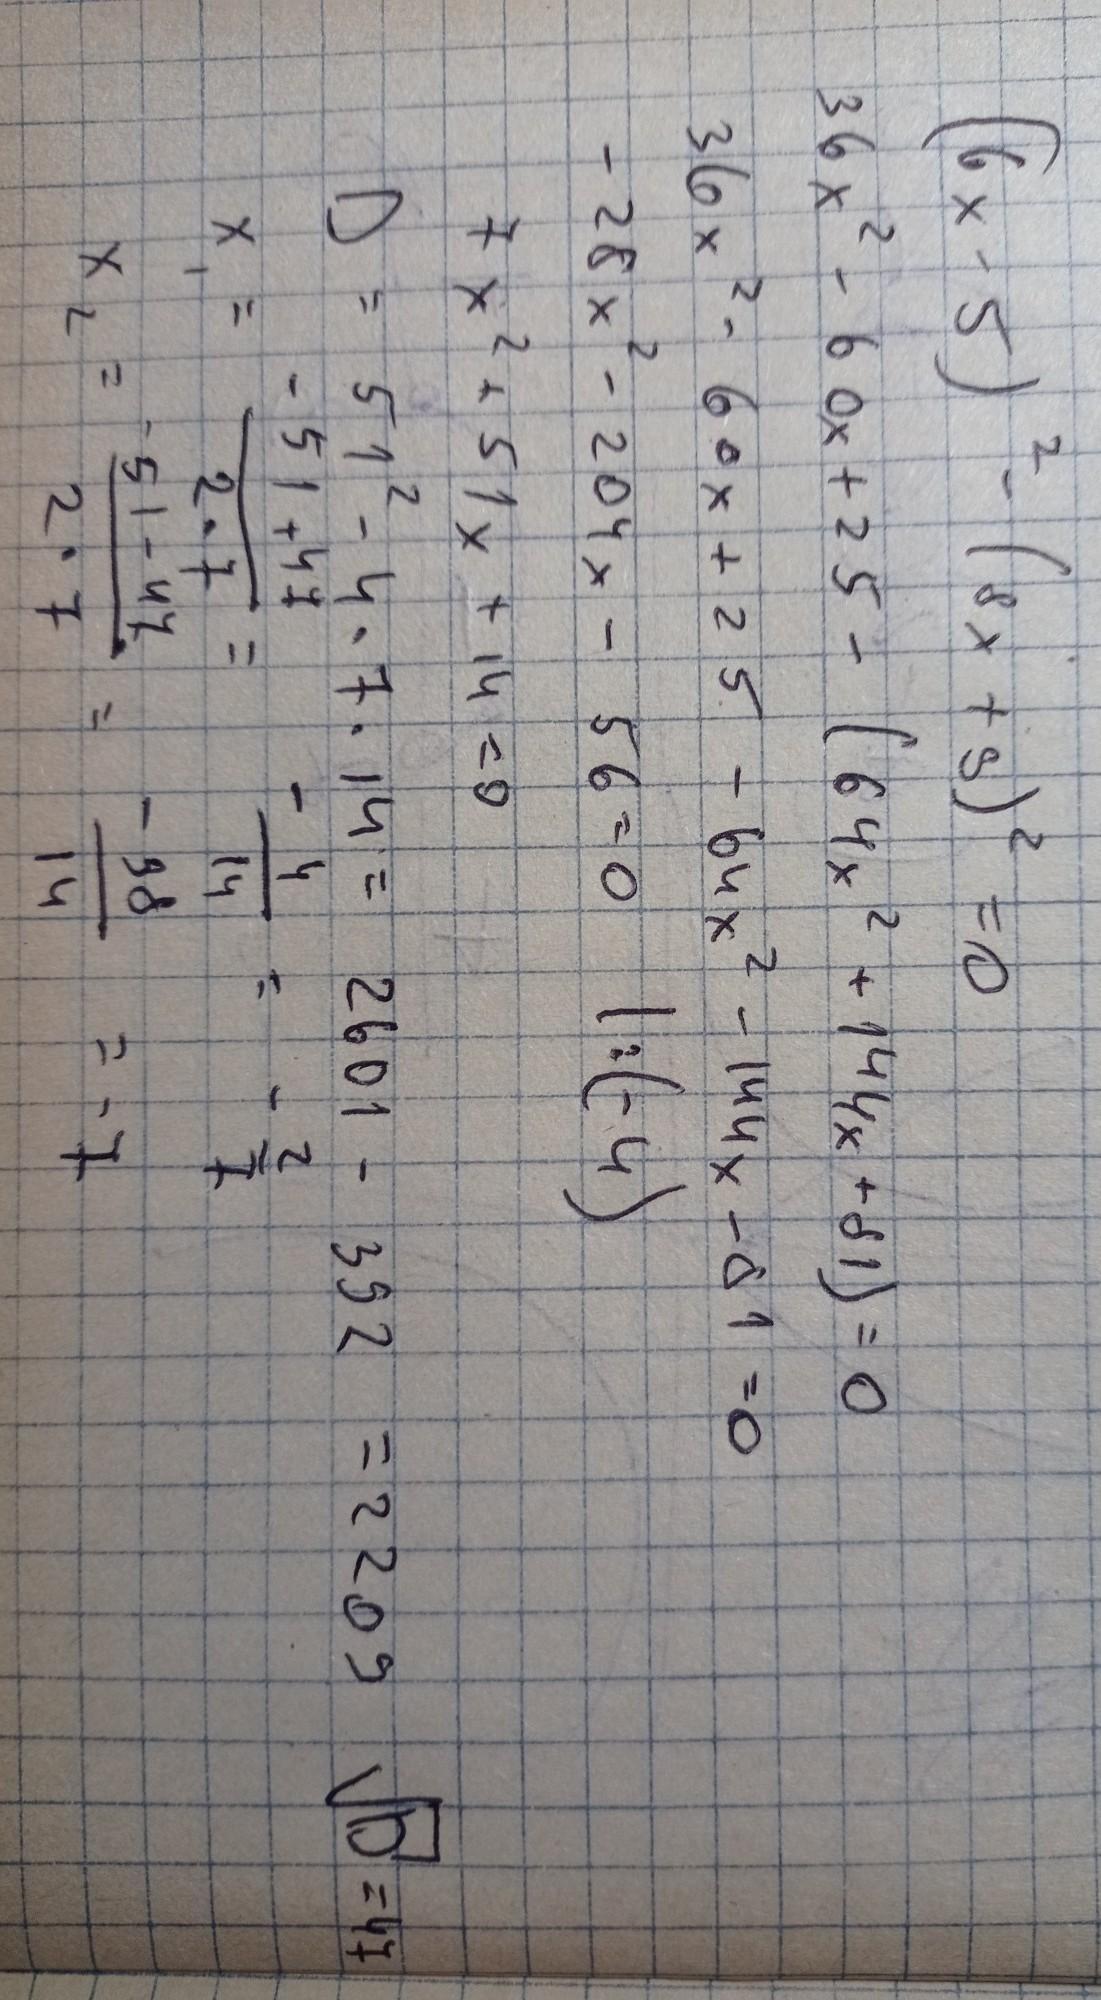 (6x-5)² - (8x+9)² = 0
36x² - 60x + 25 - (64x² + 144x + 81) = 0
36x² - 60x + 25 - 64x² - 144x - 81 = 0
-28x² - 204x - 56 = 0 |:(-4)
7x² + 51x + 14 = 0
D = 51² - 4·7·14 = 2601 - 392 = 2209 √D = 47
x₁ = (-51+47)/(2·7) = -4/14 = -2/7
x₂ = (-51-47)/(2·7) = -98/14 = -7